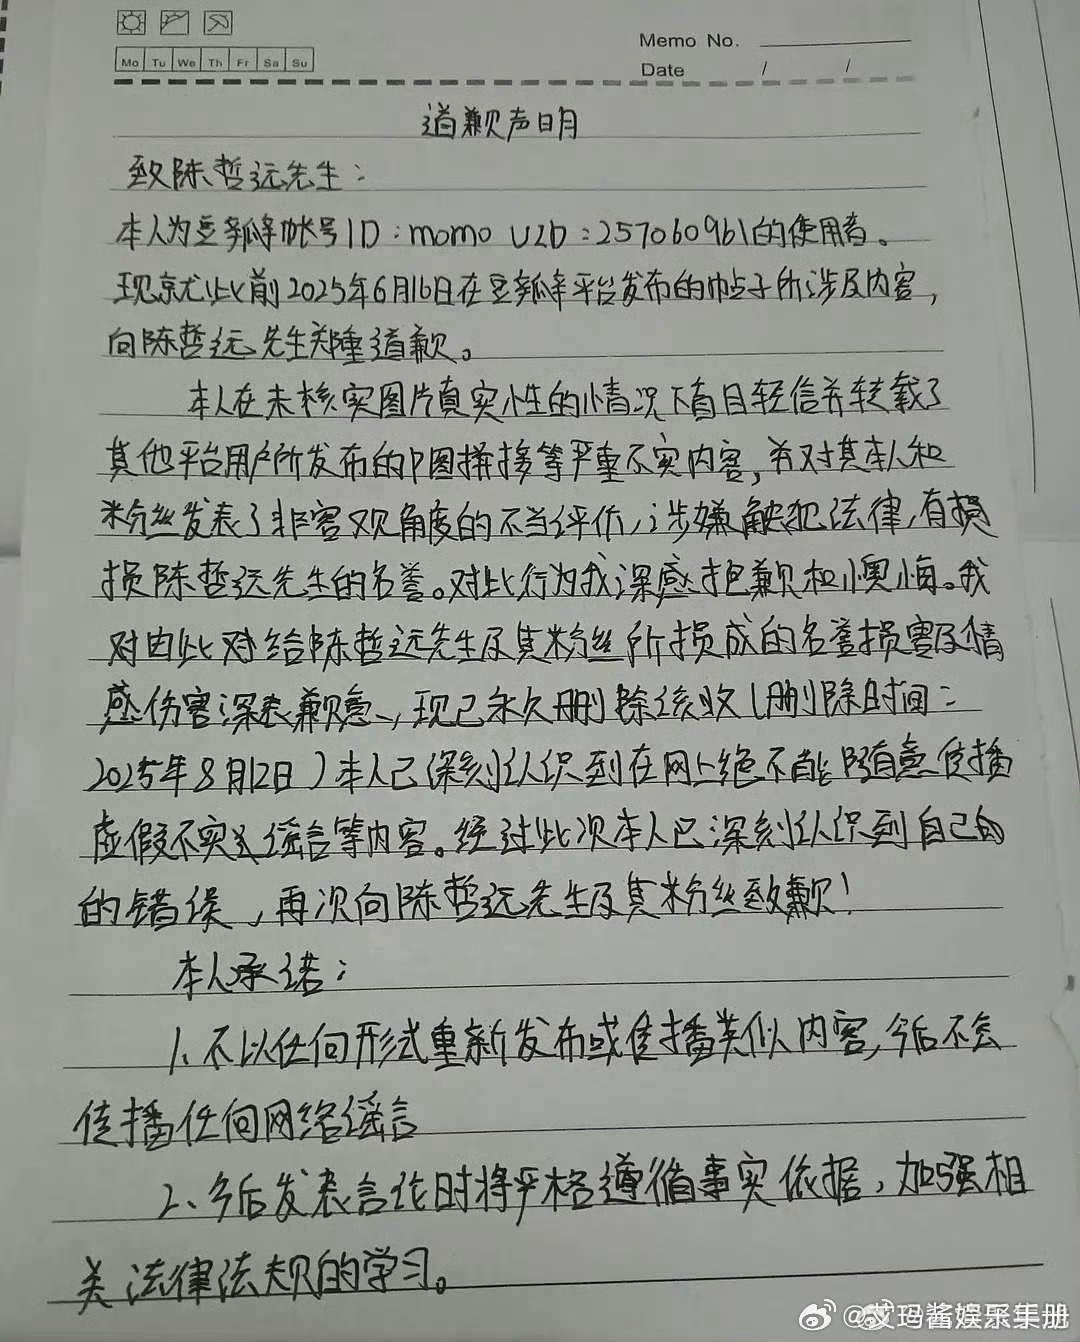 Memo No.
Mo Tu We Th Fr Sa Su
Date / /
道歉声明
致陈哲远先生：
本人为豆瓣帐号ID：momo UID：257060961的使用者。
现就此前2025年6月16日在豆瓣平台发布的帖子所涉及内容，
向陈哲远先生郑重道歉。
本人在未核实图片真实性的情况下盲目轻信并转载了
其他平台用户所发布的P图拼接等严重不实内容，并对其本人和
粉丝发表了非客观角度的不当评价，涉嫌触犯法律，有损
损陈哲远先生的名誉。对此行为我深感抱歉和懊悔。我
对由此对给陈哲远先生及其粉丝所损成的名誉损害及情
感伤害深表歉意，现已永久删除该收（删除时间：
2025年8月12日）本人已深刻认识到在网上绝不能随意传播
虚假不实谣言等内容。经过此次本人已深刻认识到自己的
的错误，再次向陈哲远先生及其粉丝致歉！
本人承诺：
1、不以任何形式重新发布或传播类似内容，今后不会
传播任何网络谣言
2、今后发表言论时将严格遵循事实依据，加强相
关法律法规的学习。
@艾玛酱娱乐集册